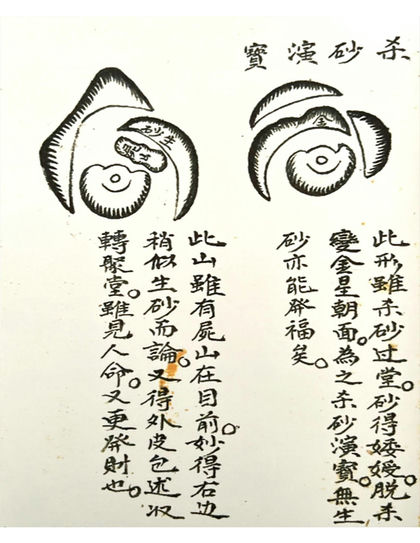 杀砂演寶
金
此形雖杀砂过堂。砂得婑媛。脱杀
變金星朝面。為之杀砂演寶。無生
砂亦能發福矣。
生砂
此山雖有屍山在目前。妙得右边
稍似生砂而論。又得外皮包述收
轉聚堂。雖見人命。又更發財也。